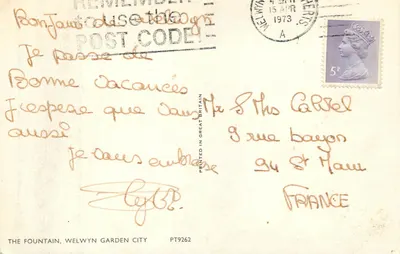 REMEMBER
to use the
POST CODE
WELWYN
HERTS
15 APR
1973
A
5P
Bonjour
Je passe de
Bonne vacances
J'espere que vous
aussi
Je vous embrasse
Mr & Mrs Cabtel
9 rue bayon
94 St Maur
FRANCE
PRINTED IN GREAT BRITAIN
THE FOUNTAIN, WELWYN GARDEN CITY PT9262